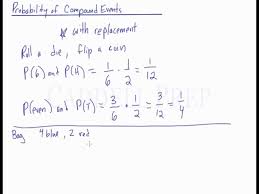 Probability of Compound Events
* with replacement
Roll a die, flip a coin
P(6) and P(H) = 1/6 · 1/2 = 1/12
P(even) and P(T) = 3/6 · 1/2 = 3/12 = 1/4
Bag 4 blue, 2 red